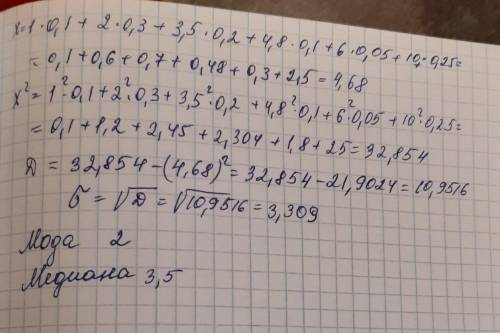 x=1·0,1+2·0,3+3,5·0,2+4,8·0,1+6·0,05+10·0,25=
=0,1+0,6+0,7+0,48+0,3+2,5=4,68
x²=1²·0,1+2²·0,3+3,5²·0,2+4,8²·0,1+6²·0,05+10²·0,25=
=0,1+1,2+2,45+2,304+1,8+25=32,854
Д=32,854-(4,68)²=32,854-21,9024=10,9516
σ=√Д=√10,9516=3,309
Мода 2
Медиана 3,5